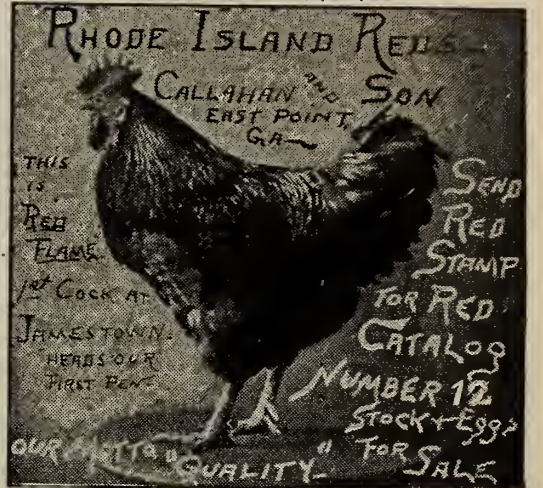 RHODE ISLAND REDS
CALLAHAN AND SON
EAST POINT,
GA
THIS
IS
RED
FLAME
1st COCK AT
JAMESTOWN.
HEADS OUR
FIRST PEN
SEND
RED
STAMP
FOR RED
CATALOG
NUMBER 12
STOCK + EGGS
FOR
SALE
OUR MOTTO "QUALITY"